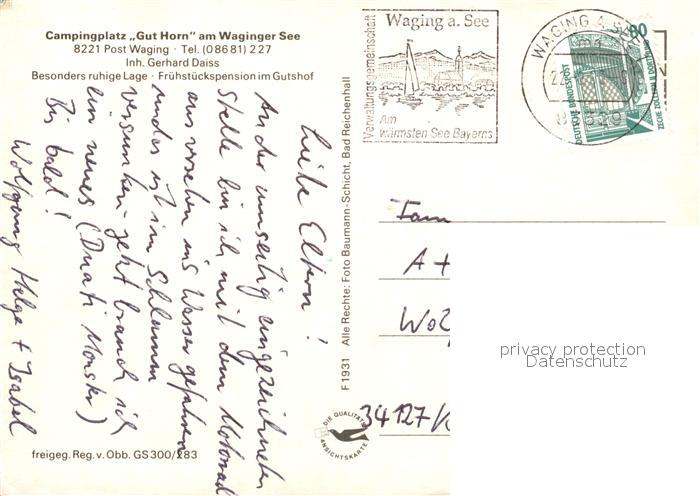 Campingplatz „Gut Horn" am Waginger See
8221 Post Waging · Tel. (08681) 227
Inh. Gerhard Daiss
Besonders ruhige Lage · Frühstückspension im Gutshof
Liebe Eltern!
An der umseitig eingezeichneten
Stelle bin ich mit dem Motorrad
aus versehen ins Wasser gefahren
und es ist im Schlamm
versunken - jetzt brauch ich
ein neues (Duati Monster)
Bis bald!
Wolfgang Helge + Isabel
freigeg. Reg. v. Obb. GS 300/283
F 1931 Alle Rechte: Foto Baumann-Schicht, Bad Reichenhall
DIE QUALITÄTS
ANSICHTSKARTE
Verwaltungsgemeinschaft
Waging a. See
Am
wärmsten See Bayerns
WAGING A. SEE
90
DEUTSCHE BUNDESPOST
ZECHE ZOLLERN II DORTMUND
Fam
A+
34127/
privacy protection
Datenschutz